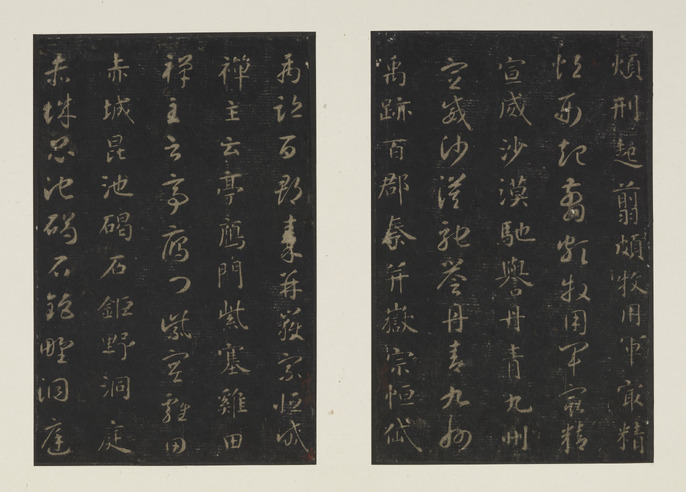 煩刑起翦頗牧用軍最精
煩刑起翦頗牧用軍最精
宣威沙漠馳譽丹青九州
宣威沙漠馳譽丹青九州
禹跡百郡秦并嶽宗恒岱
禹跡百郡秦并嶽宗恒岱
禪主云亭鴈門紫塞雞田
禪主云亭鴈門紫塞雞田
赤城昆池碣石鉅野洞庭
赤城昆池碣石鉅野洞庭